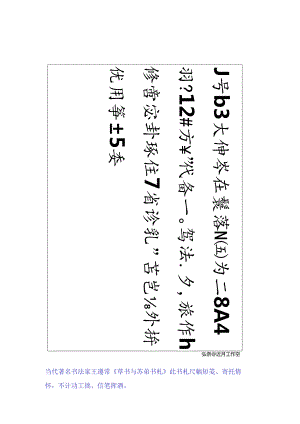 J号b3大伸岑在鬓落N㈤为二8A4
羽?12#方¥”代备一。驾法.夕,旅作h
修啻宓卦琢住7省诊乳”苫岂⅛外拚
优用筝±5委
弘宗@近月工作室
当代著名书法家王遐常《草书与苏弟书札》此书札尺幅短笺、寄托情
怀，不计功工拙、信笔挥洒。